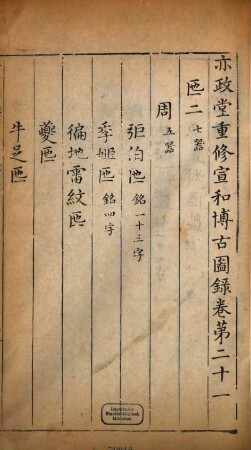 亦政堂重修宣和博古圖錄卷第二十一
匜二 七器
周 五器
弡伯匜 銘一十三字
季姬匜 銘四字
徧地雷紋匜
夔匜
牛足匜